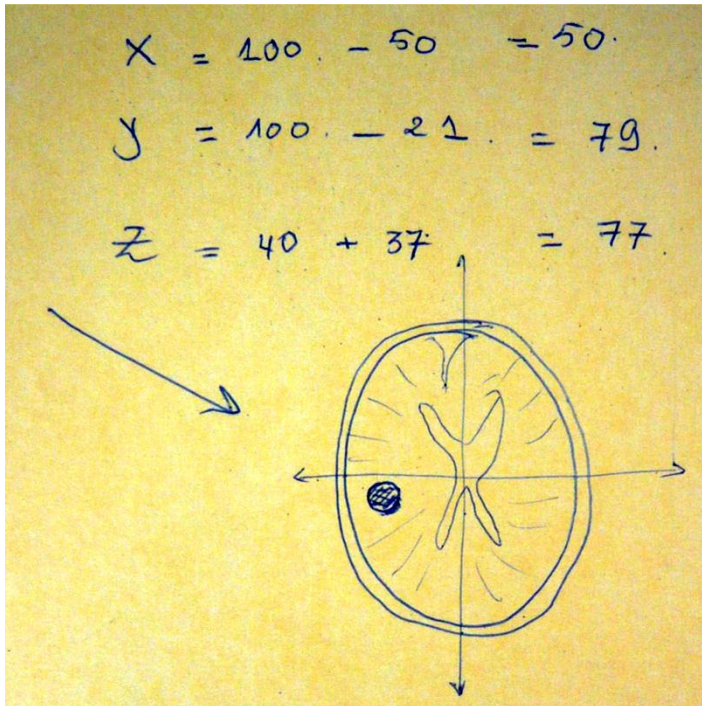 X = 100. - 50 = 50.
y = 100. - 21. = 79.
Z = 40 + 37 = 77